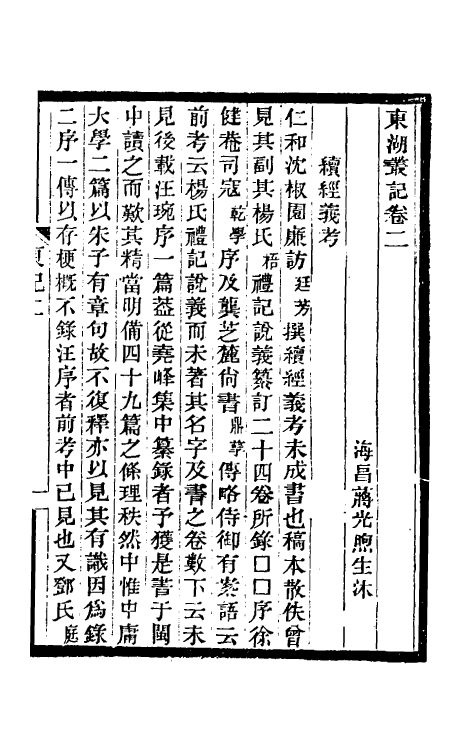 東湖叢記卷二
海昌蔣光煦生沐
續經義考
仁和沈椒園廉訪廷芳撰續經義考未成書也稿本散佚曾
見其副其楊氏梧禮記說義纂訂二十四卷所錄口口序徐
健菴司寇乾學序及龔芝麓尚書鼎孳傳略侍御有案語云
前考云楊氏禮記說義而未著其名字及書之卷數下云未
見後載汪琬序一篇葢從堯峰集中纂錄者予獲是書于閩
中讀之而歎其精當明備四十九篇之條理秩然中惟中庸
大學二篇以朱子有章句故不復釋亦以見其有識因爲錄
二序一傳以存梗概不錄汪序者前考中已見也又鄧氏庭
一